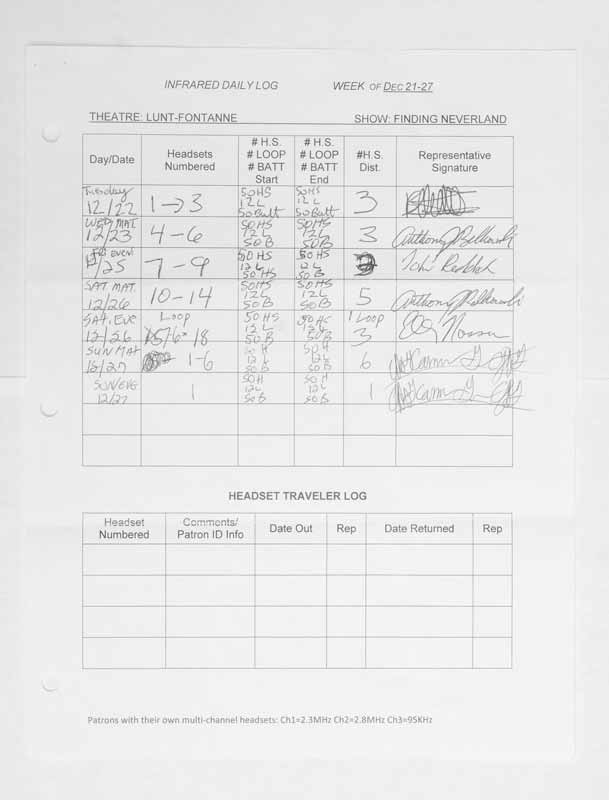 INFRARED DAILY LOG WEEK OF DEC 21-27
THEATRE: LUNT-FONTANNE SHOW: FINDING NEVERLAND
Day/Date Headsets Numbered # H.S. # LOOP # BATT Start # H.S. # LOOP # BATT End #H.S. Dist. Representative Signature
Tuesday 12/22 1→3 50HS 12L 50Batt 50HS 12L 50Batt 3
WED MAT 12/23 4-6 50HS 12L 50B 50HS 12L 50B 3 Anthony
EVEN /25 7-9 50HS 12L 50B 50HS 12L 50B
SAT. MAT. 12/26 10-14 50HS 12L 50B 50HS 12L 50B 5 Anthony
SAT. EVE 12-26 Loop 18 50HS 12L 50B 50HS 12L 50B 1 Loop 3
SUN MAT 12/27 1-6 50H 12L 50B 50H 12L 50B 6
SUN EVE 12/27 1 50H 12L 50B 50H 12L 50B 1
HEADSET TRAVELER LOG
Headset Numbered Comments/ Patron ID Info Date Out Rep Date Returned Rep
Patrons with their own multi-channel headsets: Ch1=2.3MHz Ch2=2.8MHz Ch3=95KHz